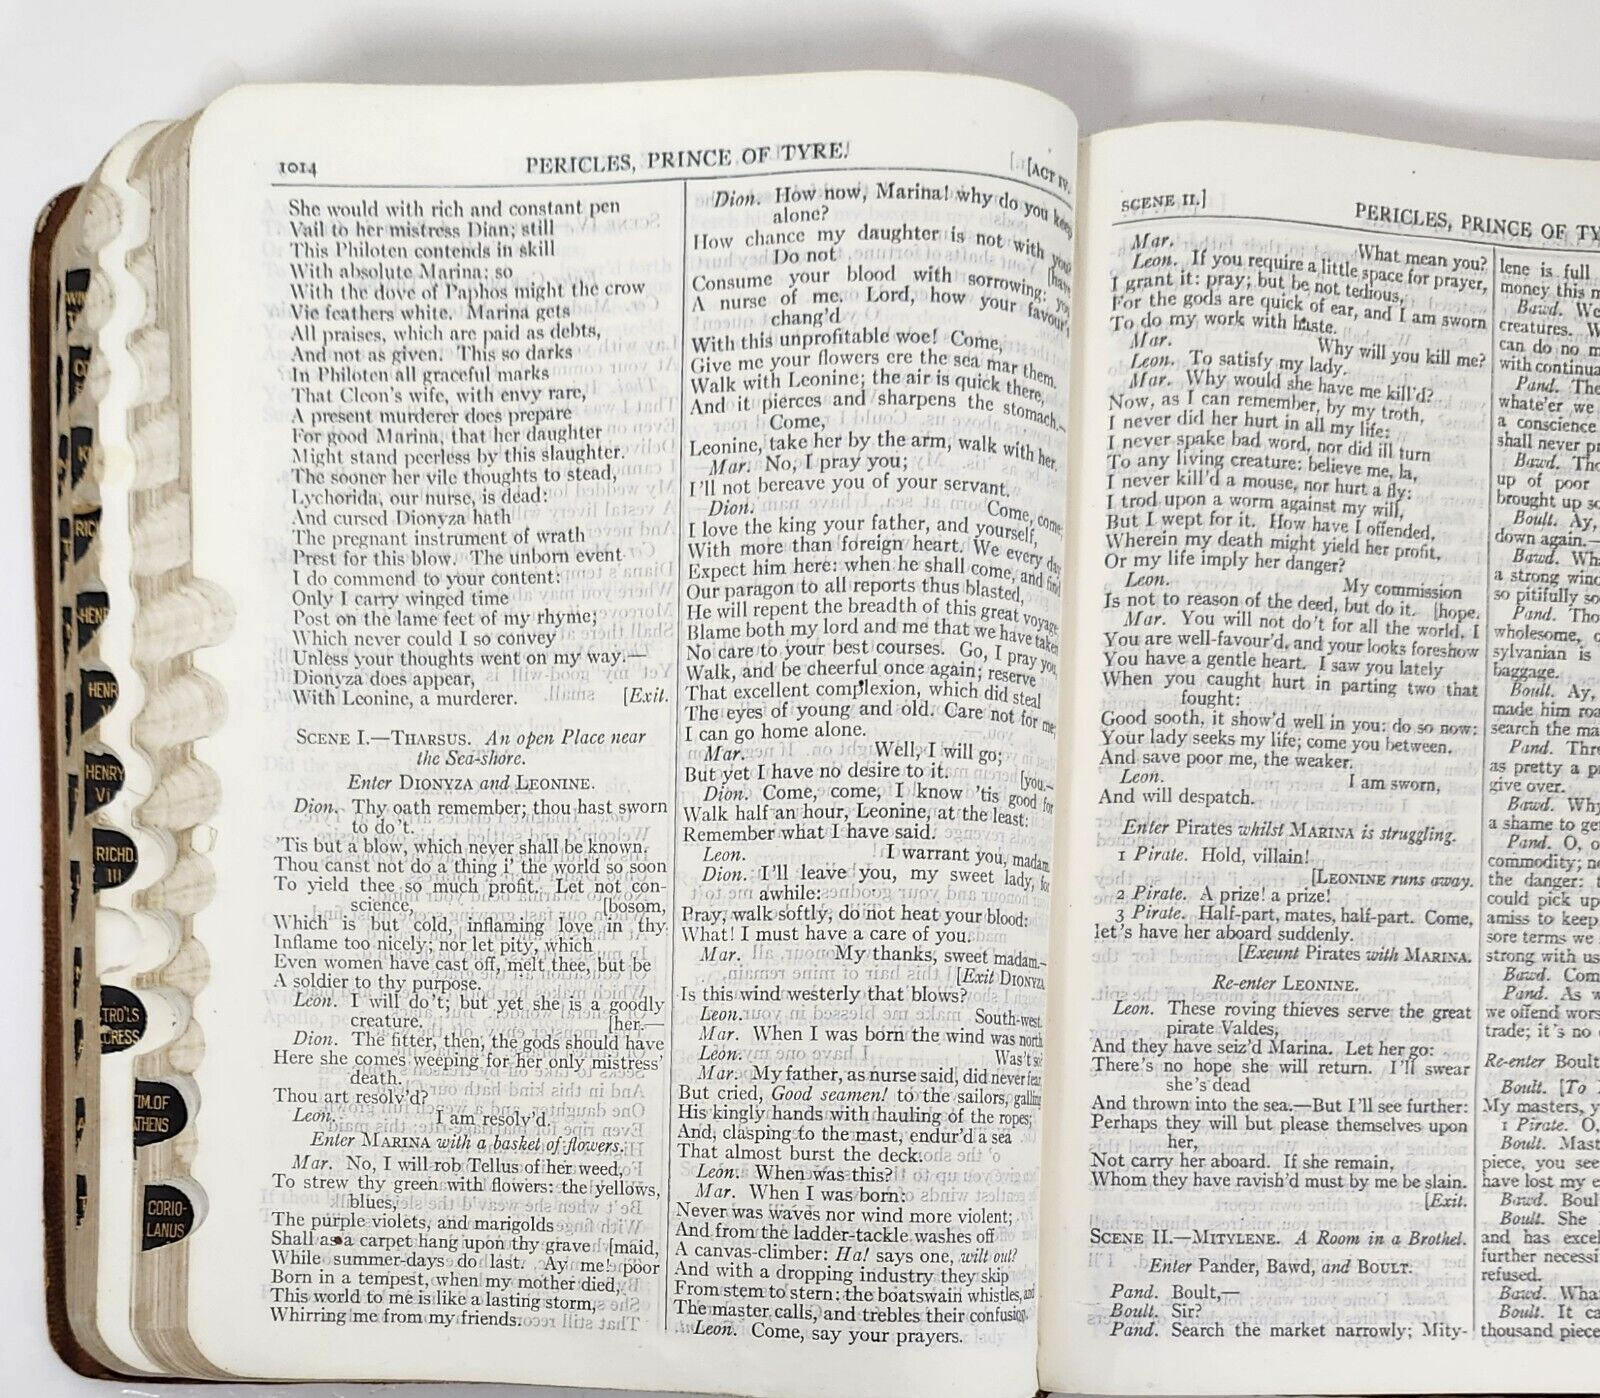 1014
PERICLES, PRINCE OF TYRE.
[ACT IV.
She would with rich and constant pen
Vail to her mistress Dian; still
This Philoten contends in skill
With absolute Marina: so
With the dove of Paphos might the crow
Vie feathers white. Marina gets
All praises, which are paid as debts,
And not as given. This so darks
In Philoten all graceful marks
That Cleon's wife, with envy rare,
A present murderer does prepare
For good Marina, that her daughter
Might stand peerless by this slaughter.
The sooner her vile thoughts to stead,
Lychorida, our nurse, is dead:
And cursed Dionyza hath
The pregnant instrument of wrath
Prest for this blow. The unborn event
I do commend to your content:
Only I carry winged time
Post on the lame feet of my rhyme;
Which never could I so convey
Unless your thoughts went on my way.—
Dionyza does appear,
With Leonine, a murderer. [Exit.
SCENE I.—THARSUS. An open Place near
the Sea-shore.
Enter DIONYZA and LEONINE.
Dion. Thy oath remember; thou hast sworn
to do't.
'Tis but a blow, which never shall be known.
Thou canst not do a thing i' the world so soon
To yield thee so much profit. Let not con-
science, [bosom,
Which is but cold, inflaming love in thy
Inflame too nicely; nor let pity, which
Even women have cast off, melt thee, but be
A soldier to thy purpose.
Leon. I will do't; but yet she is a goodly
creature. [her.—
Dion. The fitter, then, the gods should have
Here she comes weeping for her only mistress'
death.
Thou art resolv'd?
Leon. I am resolv'd.
Enter MARINA with a basket of flowers.
Mar. No, I will rob Tellus of her weed,
To strew thy green with flowers: the yellows,
blues,
The purple violets, and marigolds
Shall as a carpet hang upon thy grave [maid,
While summer-days do last. Ay me! poor
Born in a tempest, when my mother died,
This world to me is like a lasting storm,
Whirring me from my friends.
Dion. How now, Marina! why do you keep
alone?
How chance my daughter is not with you?
Do not [have
Consume your blood with sorrowing: you
A nurse of me. Lord, how your favour's
chang'd
With this unprofitable woe! Come,
Give me your flowers ere the sea mar them.
Walk with Leonine; the air is quick there,
And it pierces and sharpens the stomach.—
Come,
Leonine, take her by the arm, walk with her.
Mar. No, I pray you;
I'll not bereave you of your servant.
Dion. Come, come;
I love the king your father, and yourself,
With more than foreign heart. We every day
Expect him here: when he shall come, and find
Our paragon to all reports thus blasted,
He will repent the breadth of this great voyage;
Blame both my lord and me that we have taken
No care to your best courses. Go, I pray you,
Walk, and be cheerful once again; reserve
That excellent complexion, which did steal
The eyes of young and old. Care not for me;
I can go home alone.
Mar. Well, I will go;
But yet I have no desire to it. [you.—
Dion. Come, come, I know 'tis good for
Walk half an hour, Leonine, at the least:
Remember what I have said.
Leon. I warrant you, madam.
Dion. I'll leave you, my sweet lady, for
awhile:
Pray, walk softly, do not heat your blood:
What! I must have a care of you.
Mar. My thanks, sweet madam.—
[Exit DIONYZA
Is this wind westerly that blows?
Leon. South-west.
Mar. When I was born the wind was north
Leon. Was't so?
Mar. My father, as nurse said, did never fear,
But cried, Good seamen! to the sailors, galling
His kingly hands with hauling of the ropes;
And, clasping to the mast, endur'd a sea
That almost burst the deck.
Leon. When was this?
Mar. When I was born:
Never was waves nor wind more violent;
And from the ladder-tackle washes off
A canvas-climber: Ha! says one, wilt out?
And with a dropping industry they skip
From stem to stern: the boatswain whistles, and
The master calls, and trebles their confusion.
Leon. Come, say your prayers.
SCENE II.]
PERICLES, PRINCE OF TY
Mar. What mean you?
Leon. If you require a little space for prayer,
I grant it: pray; but be not tedious,
For the gods are quick of ear, and I am sworn
To do my work with haste.
Mar. Why will you kill me?
Leon. To satisfy my lady.
Mar. Why would she have me kill'd?
Now, as I can remember, by my troth,
I never did her hurt in all my life:
I never spake bad word, nor did ill turn
To any living creature: believe me, la,
I never kill'd a mouse, nor hurt a fly:
I trod upon a worm against my will,
But I wept for it. How have I offended,
Wherein my death might yield her profit,
Or my life imply her danger?
Leon. My commission
Is not to reason of the deed, but do it. [hope.
Mar. You will not do't for all the world, I
You are well-favour'd, and your looks foreshow
You have a gentle heart. I saw you lately
When you caught hurt in parting two that
fought:
Good sooth, it show'd well in you: do so now:
Your lady seeks my life; come you between,
And save poor me, the weaker.
Leon. I am sworn,
And will despatch.
Enter Pirates whilst MARINA is struggling.
1 Pirate. Hold, villain!
[LEONINE runs away.
2 Pirate. A prize! a prize!
3 Pirate. Half-part, mates, half-part. Come,
let's have her aboard suddenly.
[Exeunt Pirates with MARINA.
Re-enter LEONINE.
Leon. These roving thieves serve the great
pirate Valdes,
And they have seiz'd Marina. Let her go:
There's no hope she will return. I'll swear
she's dead
And thrown into the sea.—But I'll see further:
Perhaps they will but please themselves upon
her,
Not carry her aboard. If she remain,
Whom they have ravish'd must by me be slain.
[Exit.
SCENE II.—MITYLENE. A Room in a Brothel.
Enter Pander, Bawd, and BOULT.
Pand. Boult,—
Boult. Sir?
Pand. Search the market narrowly; Mity-
lene is full
money this m
Bawd. We
creatures. W
can do no m
with continua
Pand. The
whate'er we
a conscience
shall never pr
Bawd. Tho
up of poor
brought up so
Boult. Ay,
down again.—
Bawd. Wha
a strong wind
so pitifully so
Pand. Tho
wholesome, o
sylvanian is
baggage.
Boult. Ay,
made him roa
search the ma
Pand. Thre
as pretty a p
give over.
Bawd. Why
a shame to get
Pand. O, o
commodity; n
the danger: t
could pick up
amiss to keep
sore terms we
strong with us
Bawd. Com
Pand. As w
we offend wors
trade; it's no
Re-enter Boult
Boult. [To
My masters, y
1 Pirate. O,
Boult. Mast
piece, you see
have lost my e
Bawd. Boul
Boult. She
and has excel
further necessi
refused.
Bawd. What
Boult. It ca
thousand piece
WIN
RIC
HEN
HENR
V
HENRY
VI
RICHD.
III
TRO'LS
CRESS
TIM.OF
ATHENS
CORIO-
LANUS